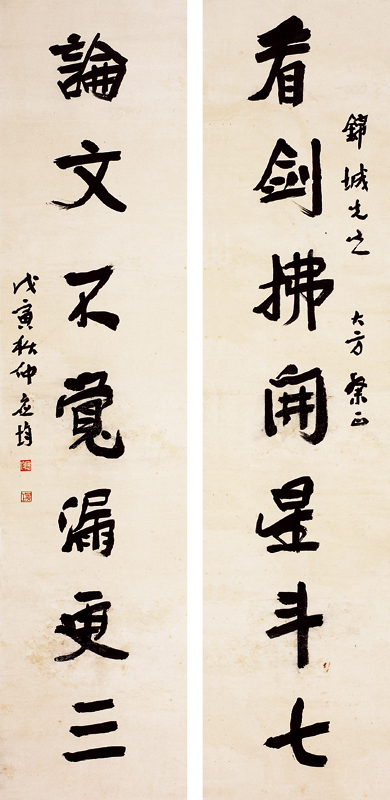 錦城先生 大方粲正
看劍拂開星斗七
論文不覺漏更三
戊寅秋仲应均